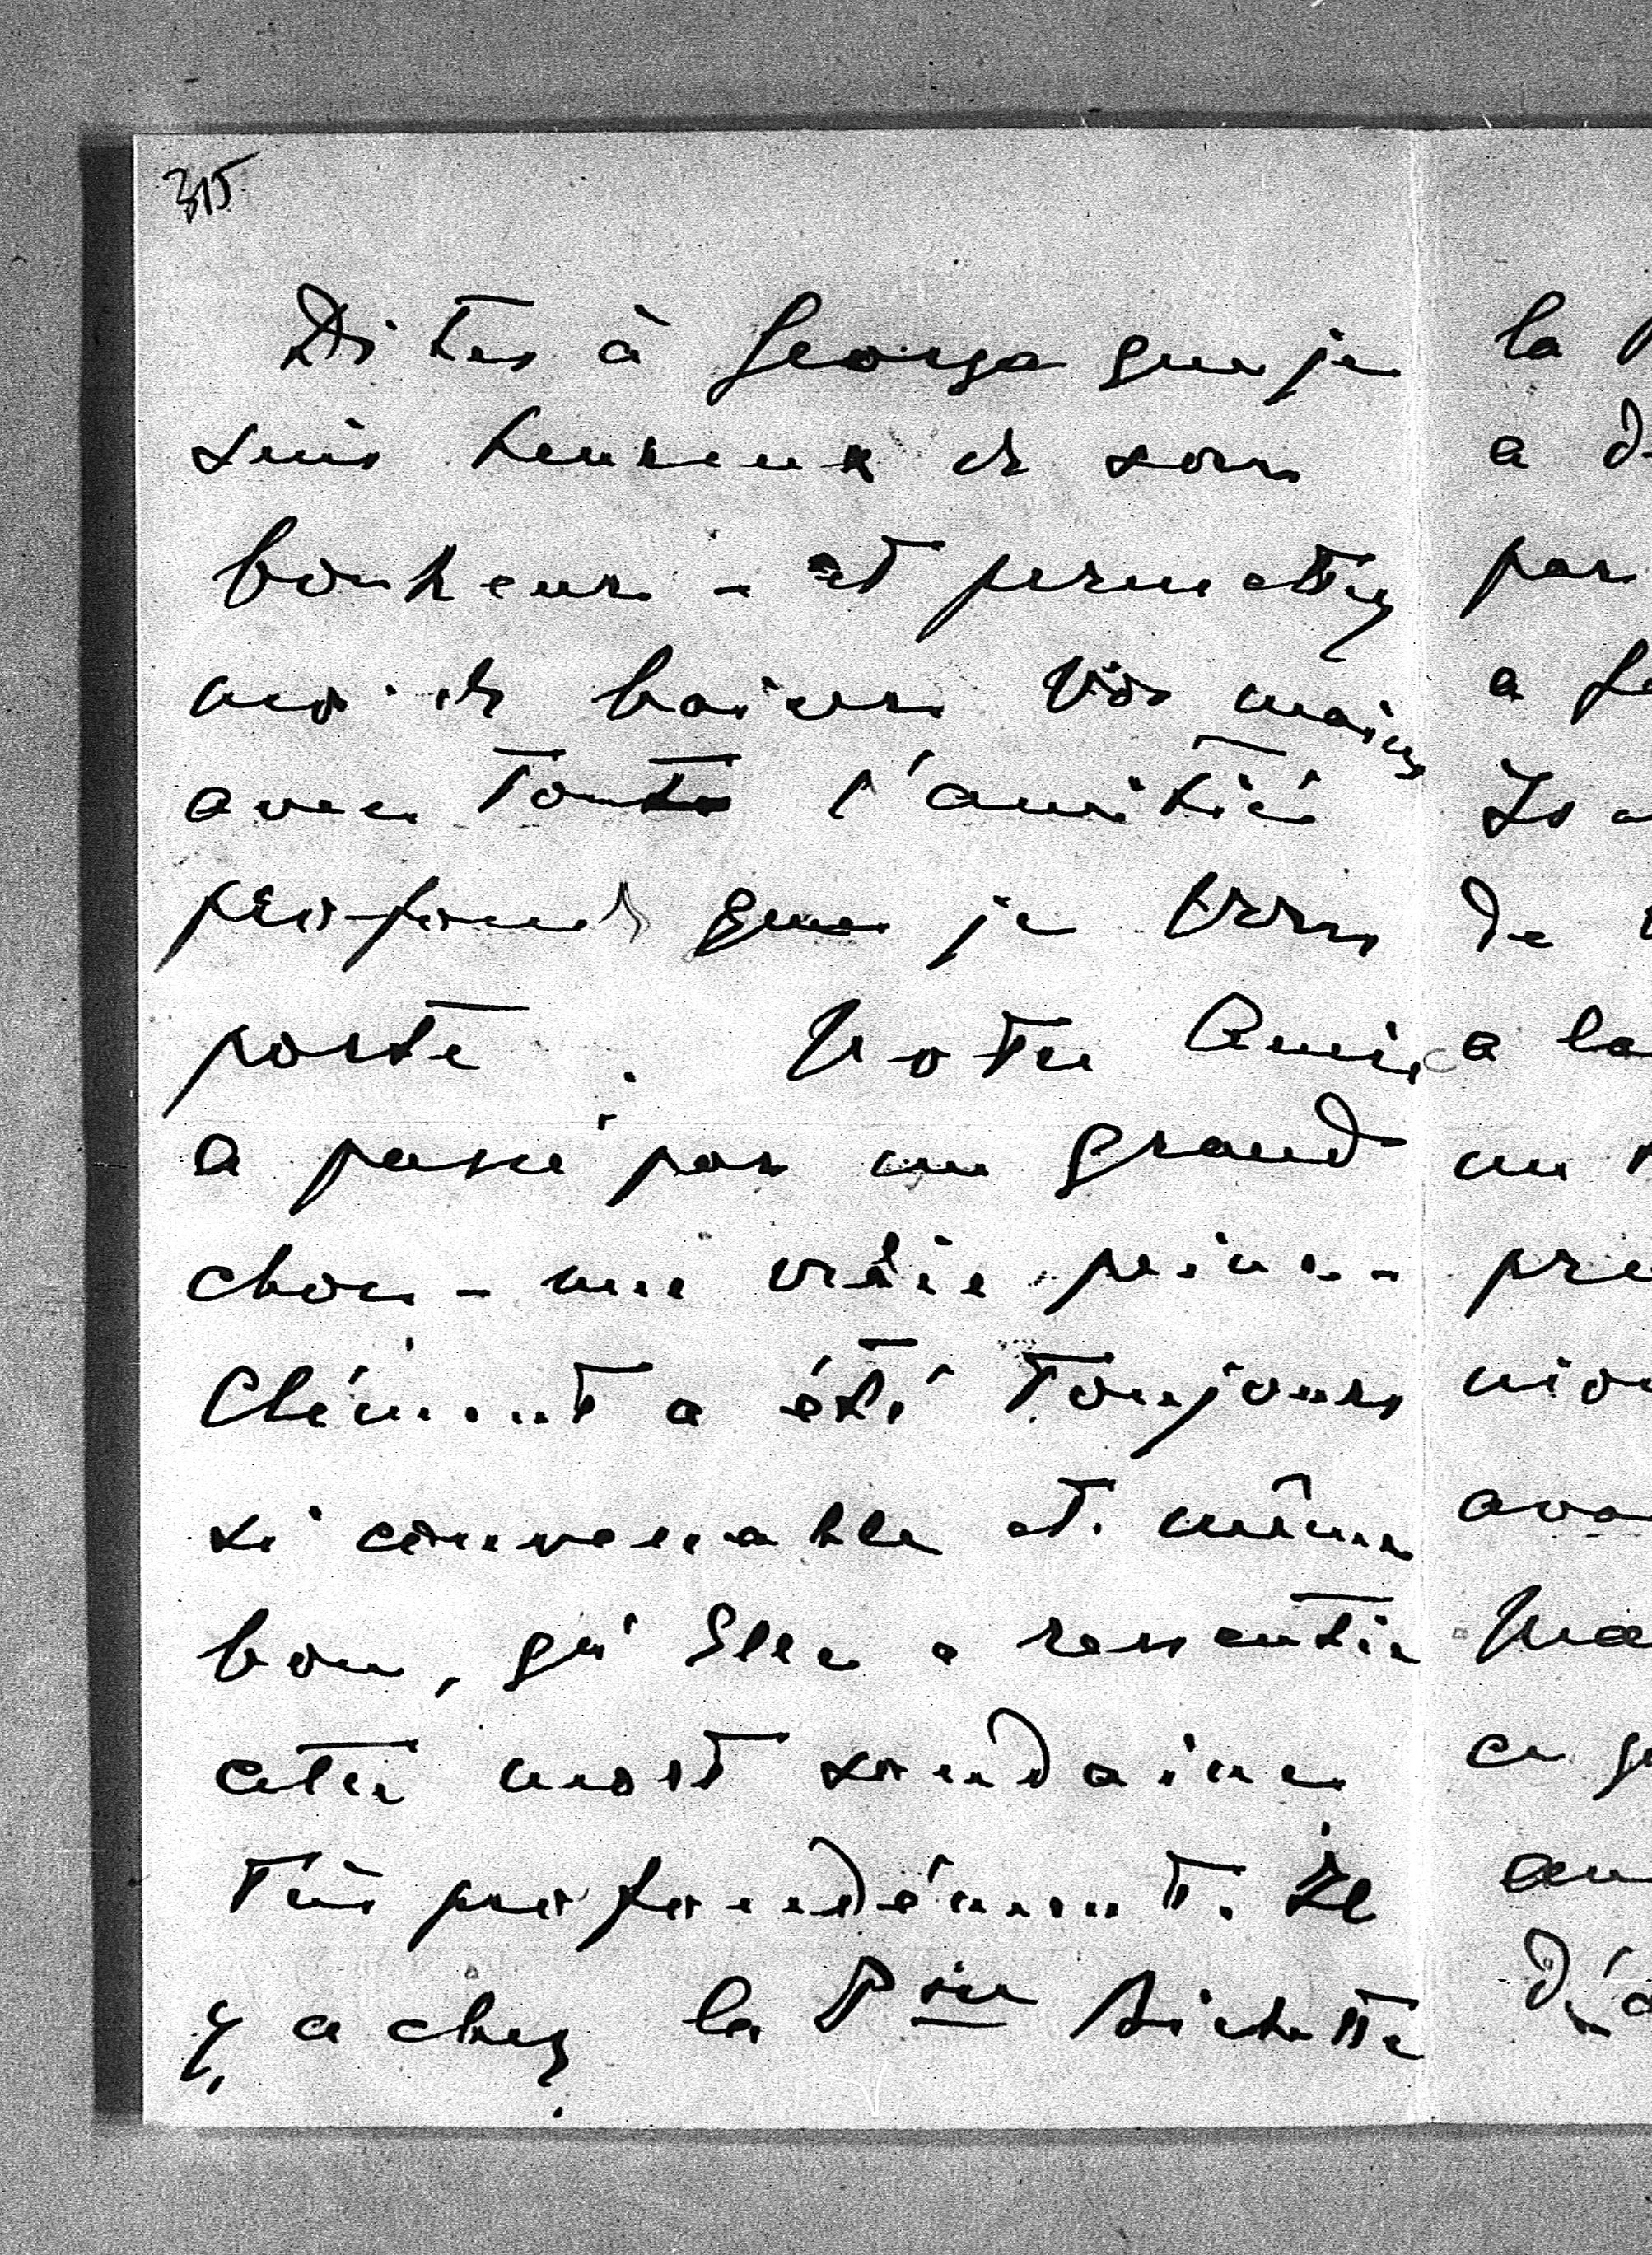 315
Dites à George que je
suis heureux de son
bonheur – et permettez
moi de baiser vos mains
avec toute l'amitié
profonde que je vous
porte. Votre Amie
a passé par un grand
choc – une vraie peine –
Clément a été toujours
si convenable et même
bon, qu'Elle a ressentie
cette mort soudaine
très profondément. Il
y a chez la Psse
la
a d
par
a
Is
de
a la
un
pre
nio
ava
Ma
ce
au
d'a